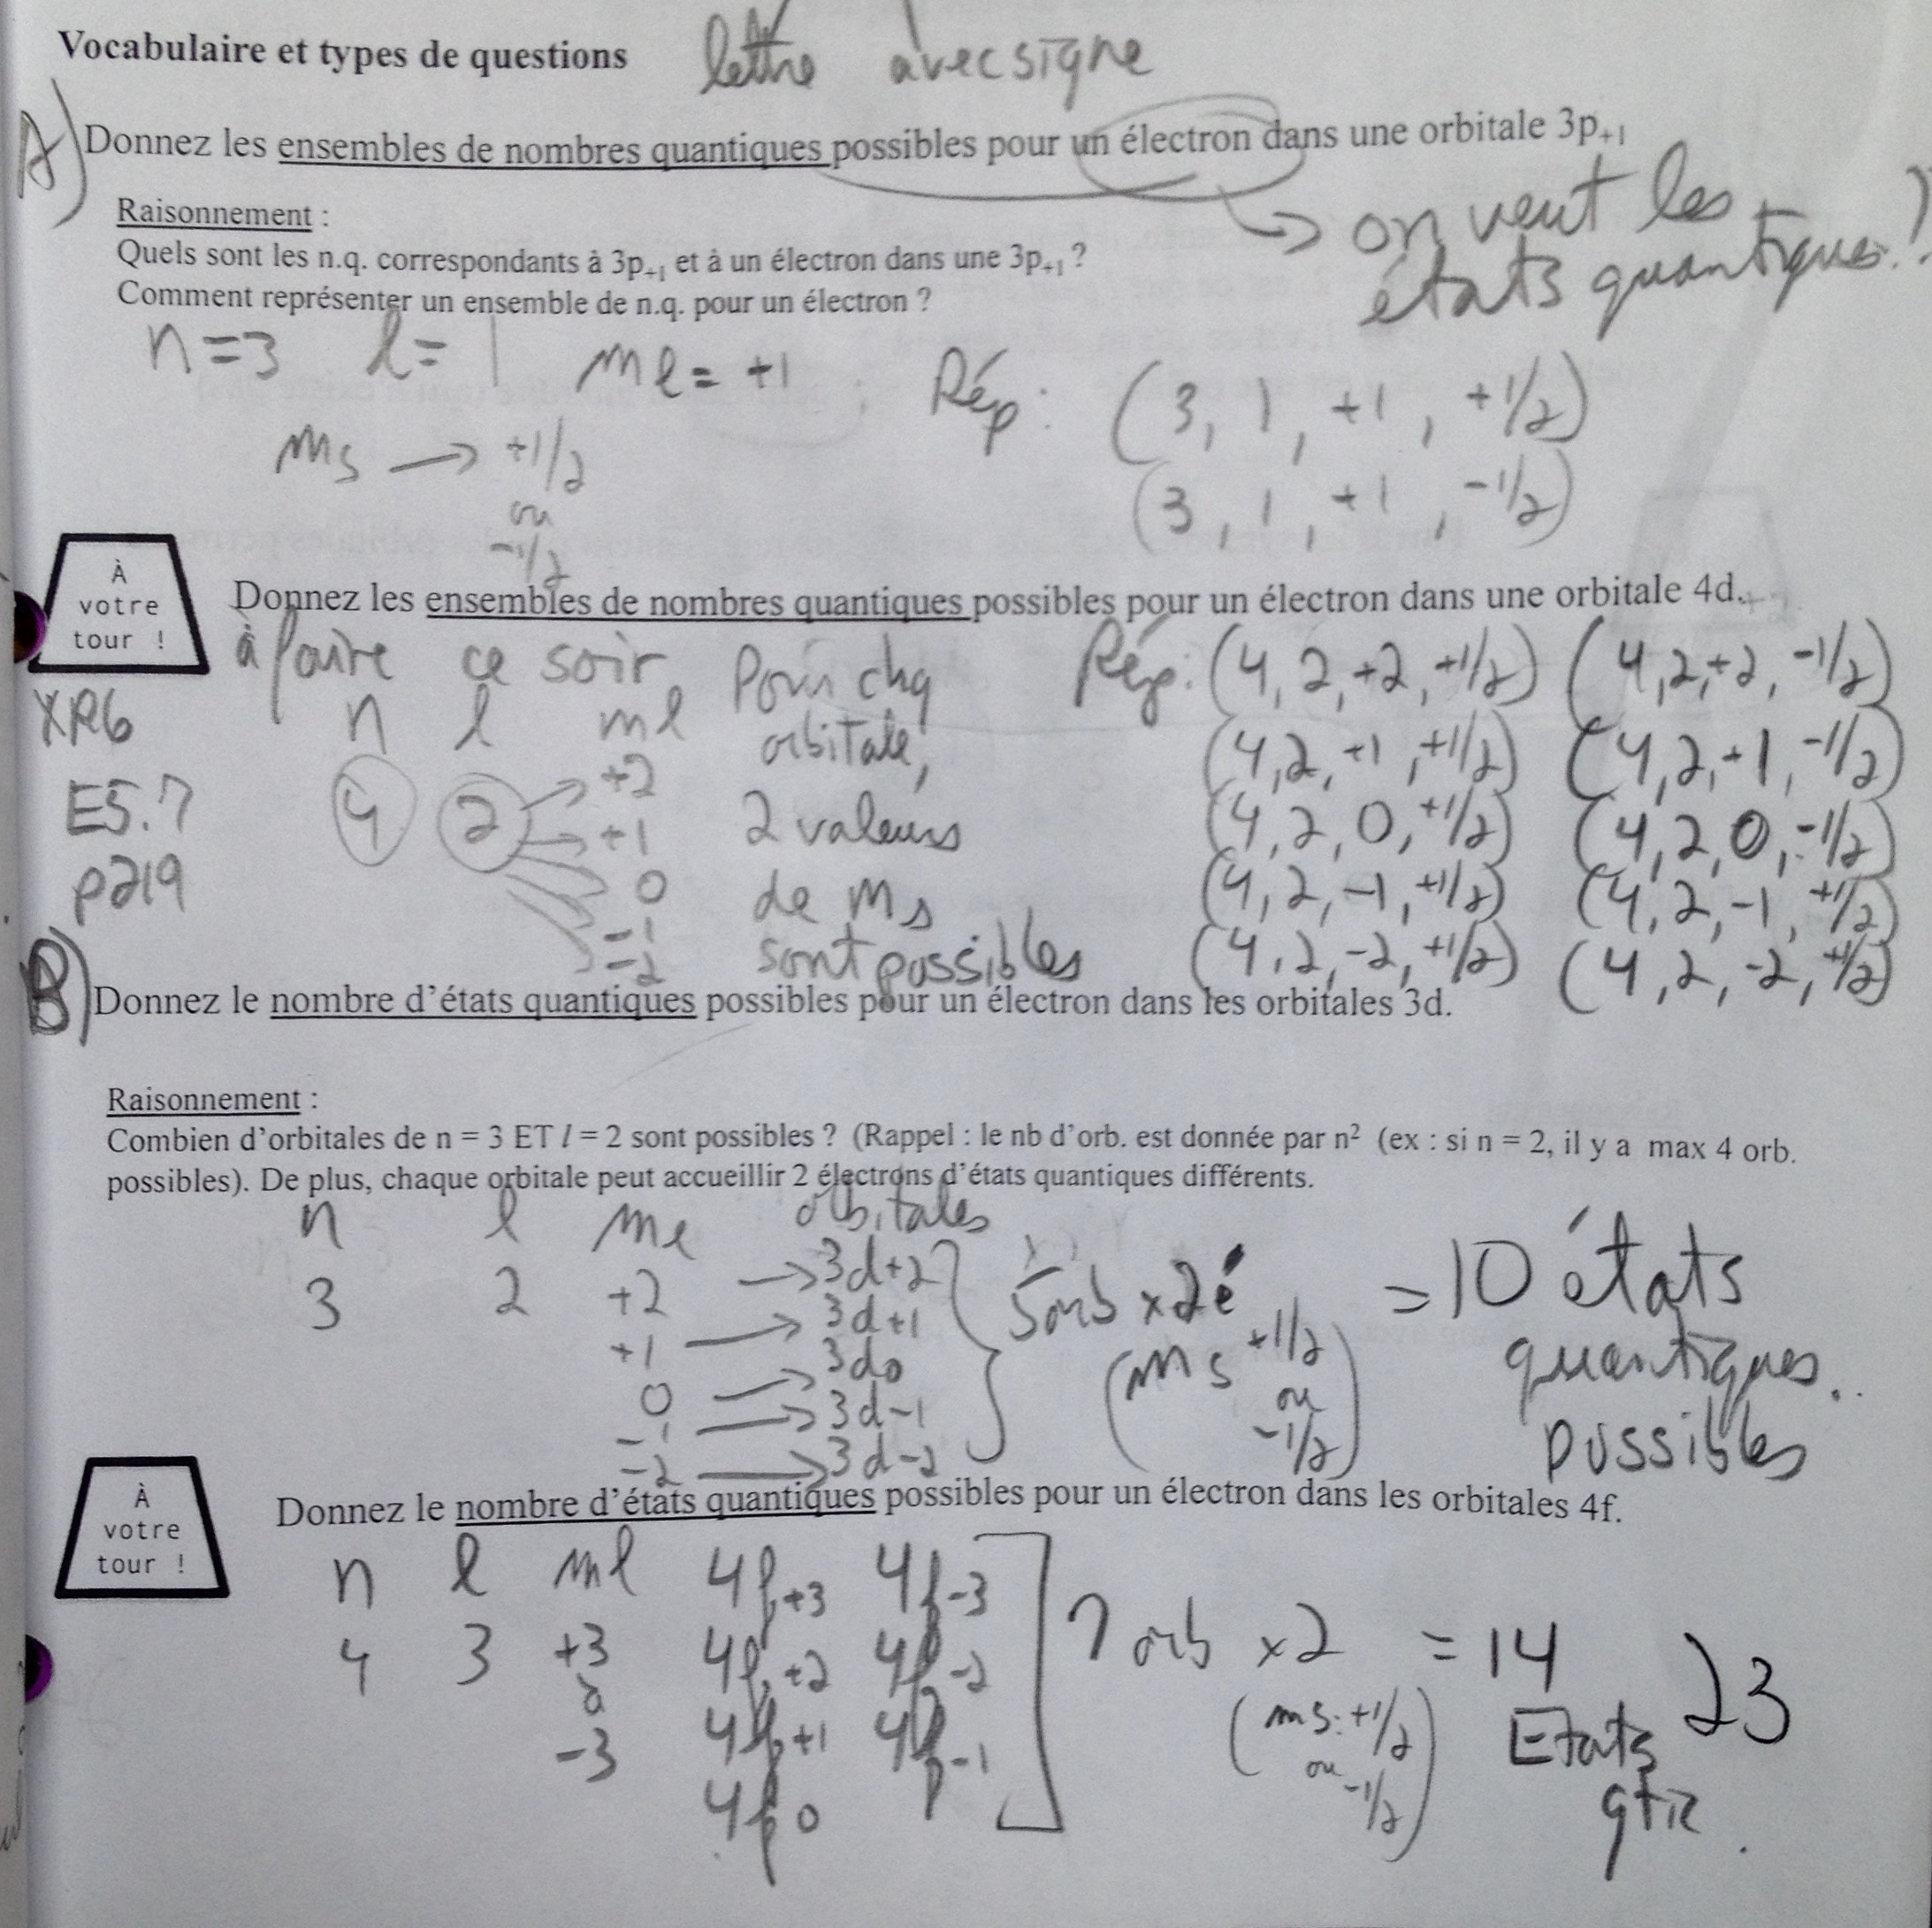 Vocabulaire et types de questions lettre avec signe
A) Donnez les ensembles de nombres quantiques possibles pour un électron dans une orbitale 3p+1
→ on veut les
états quantiques!
Raisonnement :
Quels sont les n.q. correspondants à 3p+1 et à un électron dans une 3p+1 ?
Comment représenter un ensemble de n.q. pour un électron ?
n=3 l=1 ml=+1 Rép: (3, 1, +1, +1/2)
ms → +1/2 (3, 1, +1, -1/2)
ou
-1/2
À
votre
tour !
Donnez les ensembles de nombres quantiques possibles pour un électron dans une orbitale 4d.
à faire ce soir
XR6
E5.7
p219
n l ml
4 2 +2
+1
0
-1
-2
Pour chq
orbitale,
2 valeurs
de ms
sont possibles
Rép: (4, 2, +2, +1/2) (4, 2, +2, -1/2)
(4, 2, +1, +1/2) (4, 2, +1, -1/2)
(4, 2, 0, +1/2) (4, 2, 0, -1/2)
(4, 2, -1, +1/2) (4, 2, -1, +1/2)
(4, 2, -2, +1/2) (4, 2, -2, +1/2)
B) Donnez le nombre d'états quantiques possibles pour un électron dans les orbitales 3d.
Raisonnement :
Combien d'orbitales de n = 3 ET l = 2 sont possibles ? (Rappel : le nb d'orb. est donnée par n² (ex : si n = 2, il y a max 4 orb.
possibles). De plus, chaque orbitale peut accueillir 2 électrons d'états quantiques différents.
n l ml orbitales
3 2 +2 → 3d+2
+1 → 3d+1
0 → 3d0
-1 → 3d-1
-2 → 3d-2
5orb x 2é = 10 états
(ms +1/2 quantiques.
ou possibles
-1/2)
À
votre
tour !
Donnez le nombre d'états quantiques possibles pour un électron dans les orbitales 4f.
n l ml 4f+3 4f-3
4 3 +3 4f+2 4f-2
à 4f+1 4f-1
-3 4f0
7 orb x2 = 14
(ms: +1/2 Etats
ou qtiq.
-1/2)
23